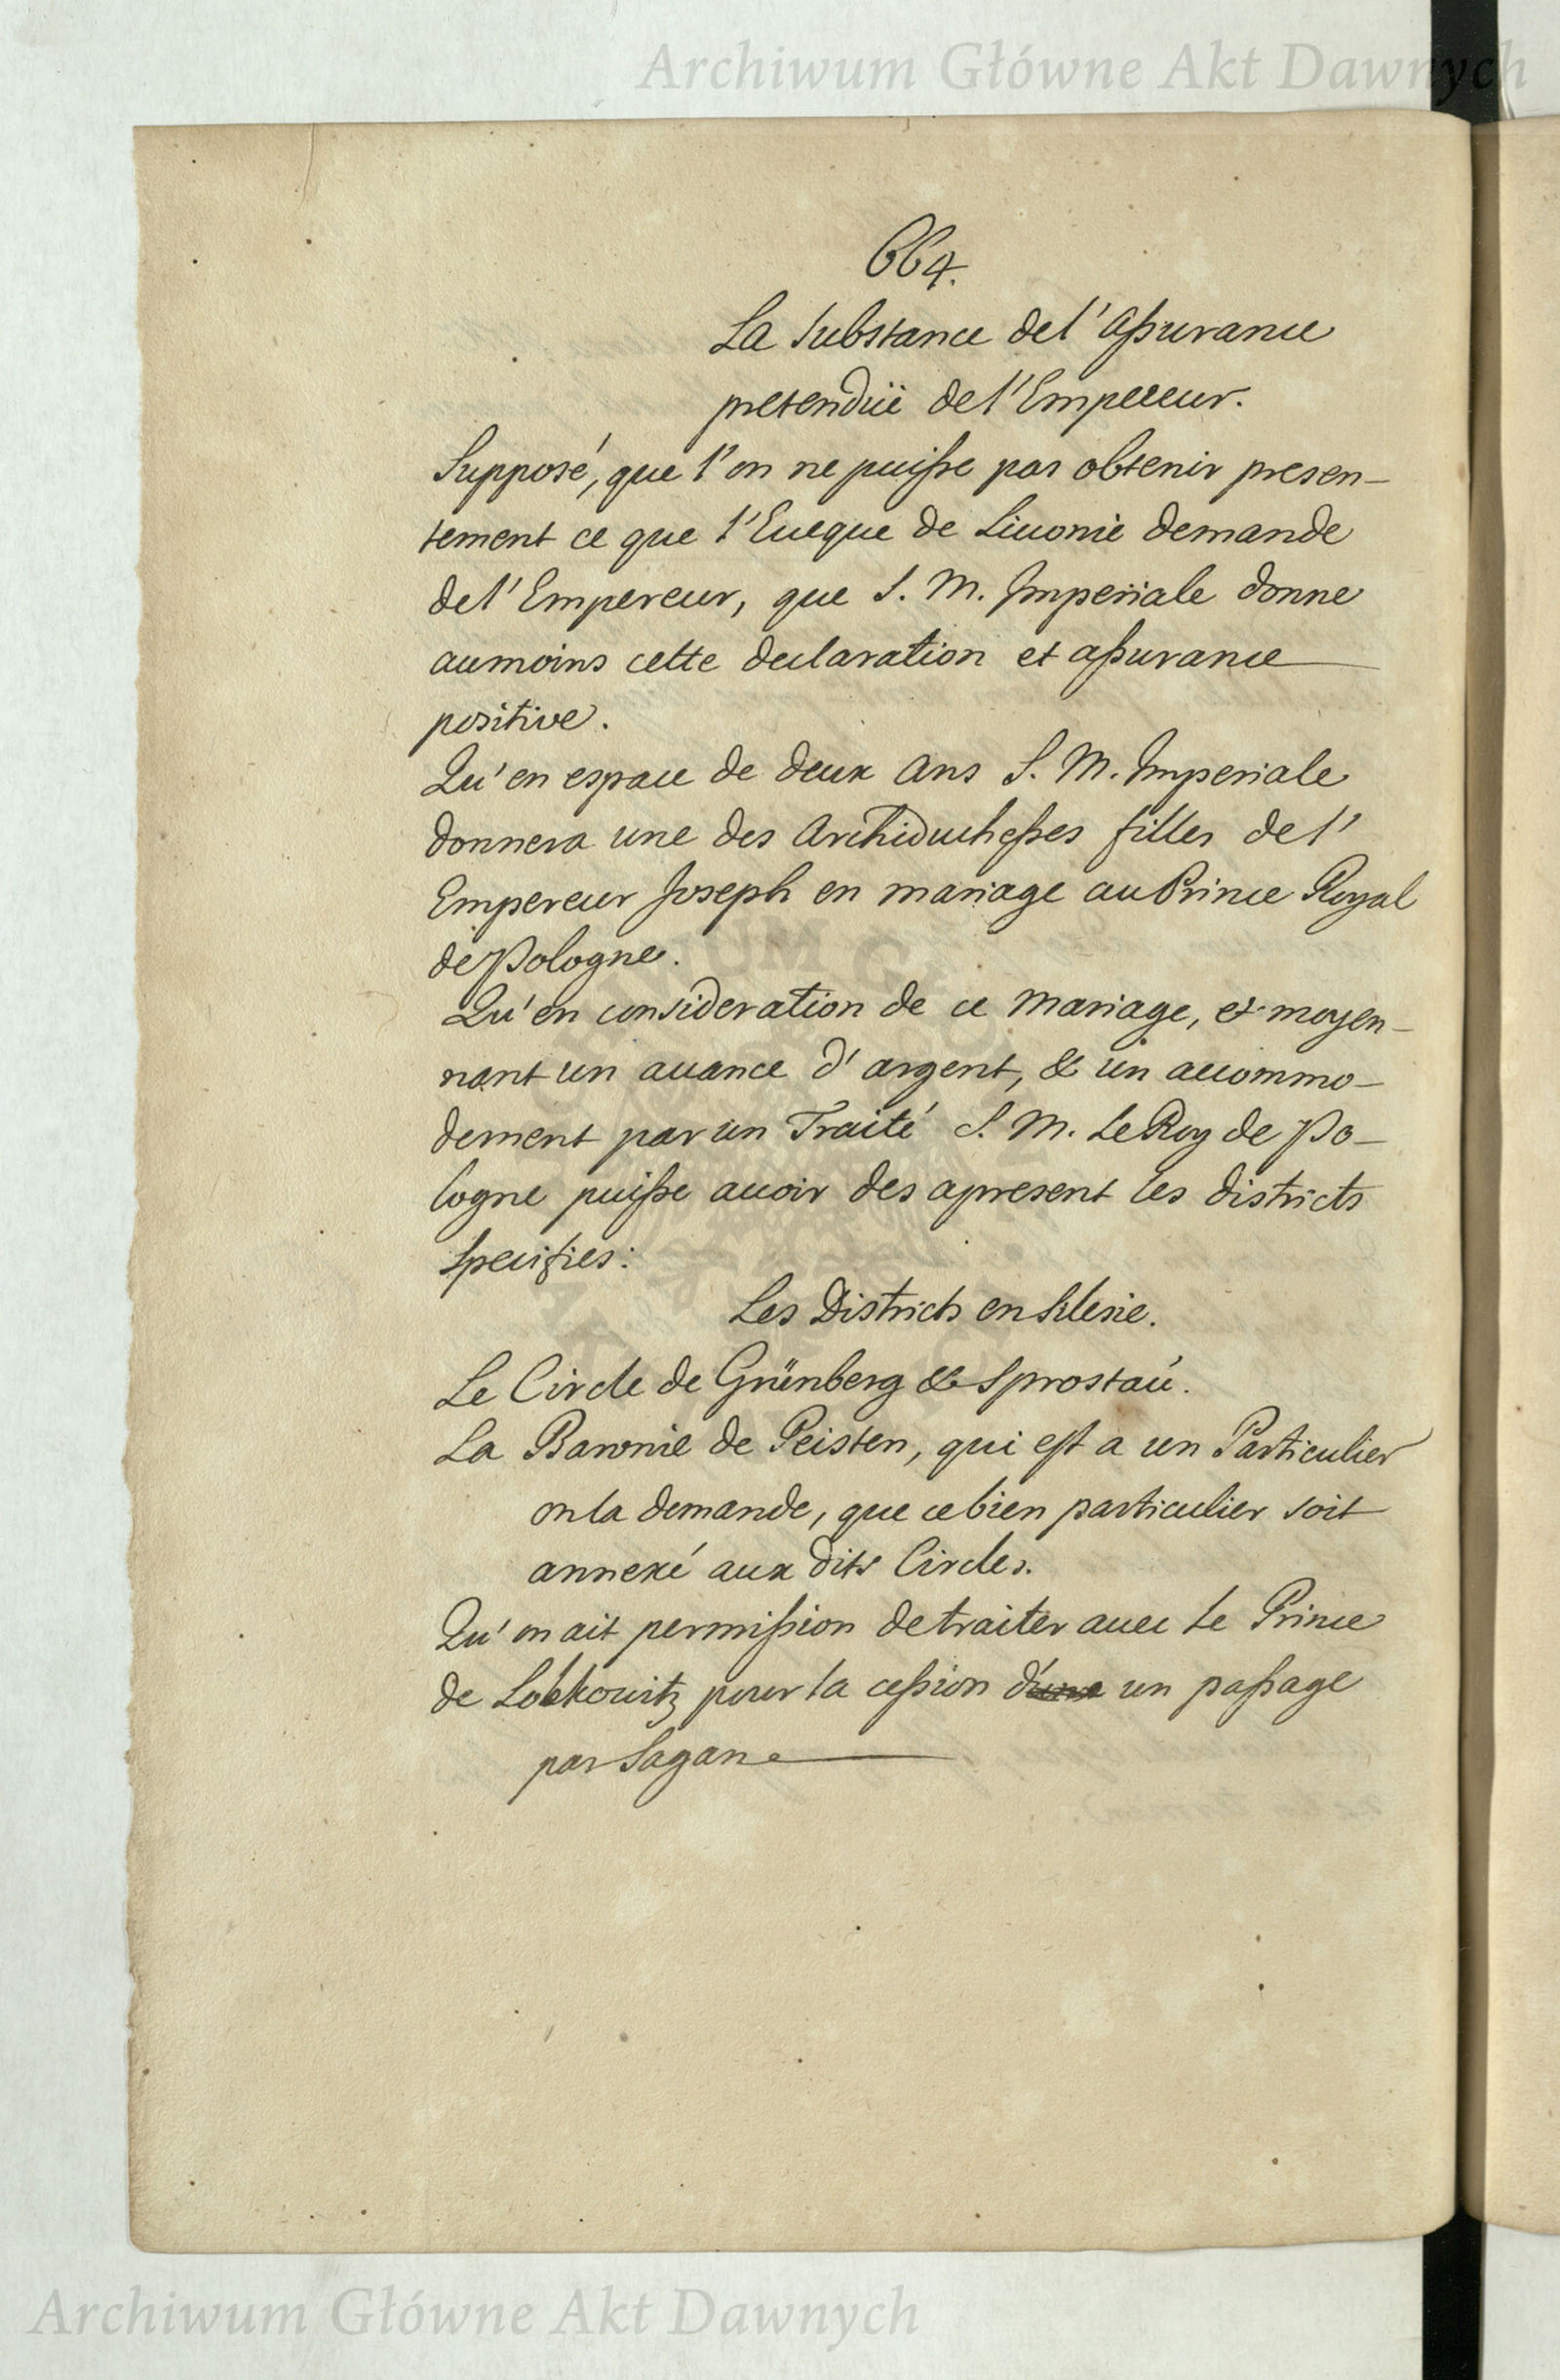 Archiwum Główne Akt Dawnych
664.
La Substance de l'Assurance
pretenduë de l'Empereur.
Supposé, que l'on ne puisse pas obtenir presen-
tement ce que l'Eueque de Liuonie demande
de l'Empereur, que S. M. Imperiale donne
aumoins cette declaration et assurance
positive.
Qu'en espace de deux Ans S. M. Imperiale
donnera une des Archiduchesses filles de l'
Empereur Joseph en mariage au Prince Royal
de Pologne.
Qu'en consideration de ce Mariage, & moyen-
nant un auance d'argent, & un accommo-
dement par un Traité S. M. Le Roy de Po-
logne puisse auoir des apresent les districts
specifies:
Les Districts en Silesie.
Le Circle de Grünberg & Sprostau.
La Baronie de Peisten, qui est a un Particulier
on la demande, que ce bien particulier soit
annexé aux dits Circles.
Qu'on ait permission de traiter auec le Prince
de Lobkowitz pour la cession d'une un passage
par Sagan
Archiwum Główne Akt Dawnych